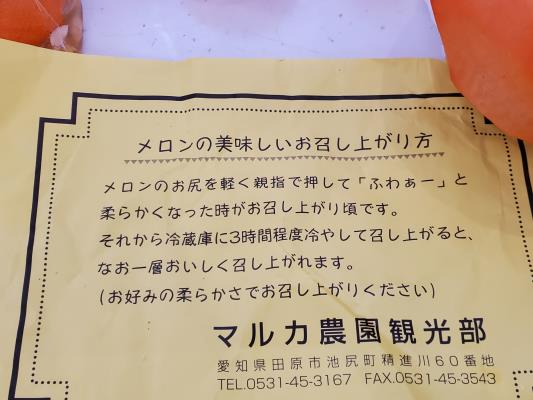 メロンの美味しいお召し上がり方
メロンのお尻を軽く親指で押して「ふわぁー」と
柔らかくなった時がお召し上がり頃です。
それから冷蔵庫に3時間程度冷やして召し上がると、
なお一層おいしく召し上がれます。
(お好みの柔らかさでお召し上がりください)
マルカ農園観光部
愛知県田原市池尻町精進川60番地
TEL.0531-45-3167 FAX.0531-45-3543